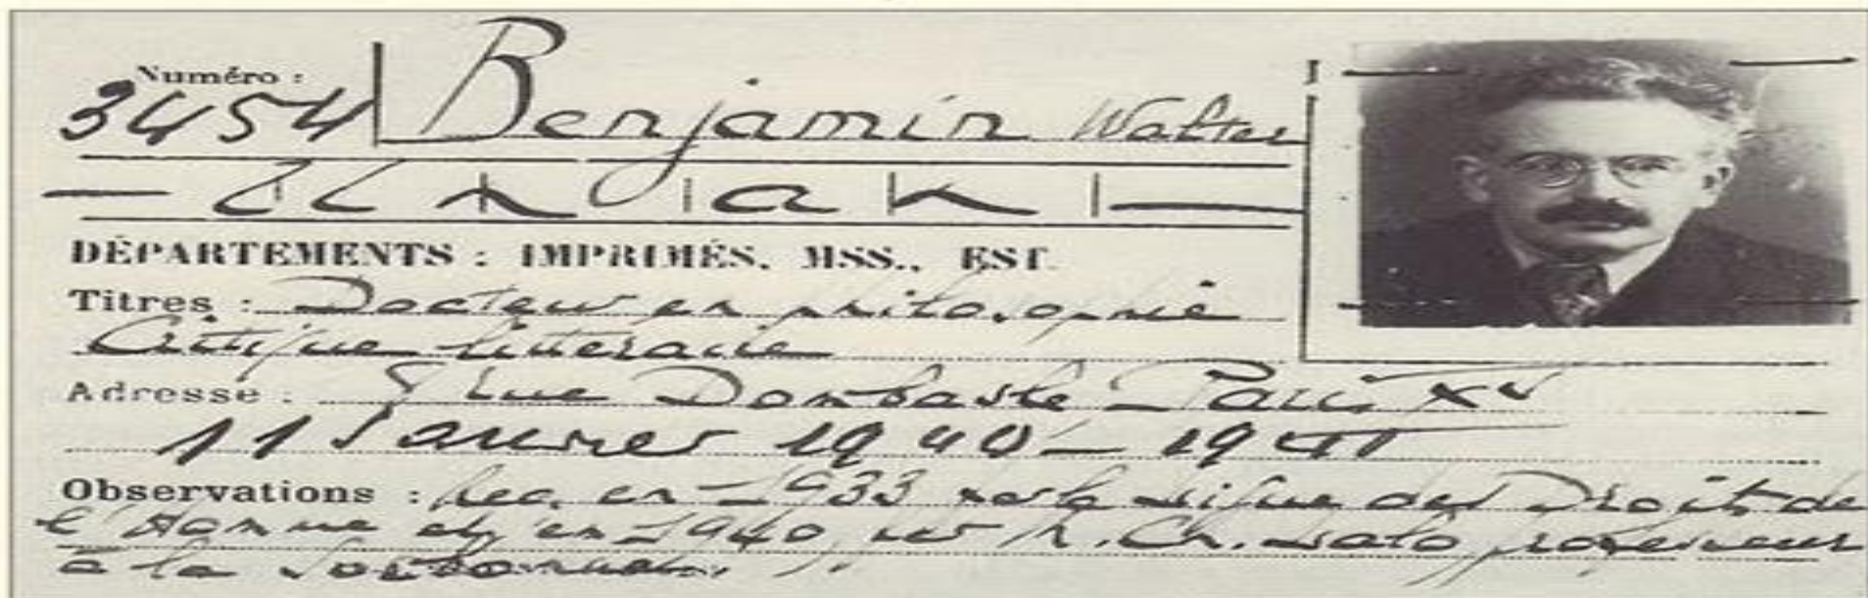 Numéro :
3454 Benjamin Walter
— un an —
DÉPARTEMENTS : IMPRIMÉS, MSS., EST.
Titres : Docteur en philosophie
Critique littéraire
Adresse : rue Dombasle – Paris XVe
11 Janvier 1940 – 1941
Observations : Rec. en 1933 par la Ligue des Droits de
l'Homme et en 1940 par M. Ch. Lalo professeur
à la Sorbonne.